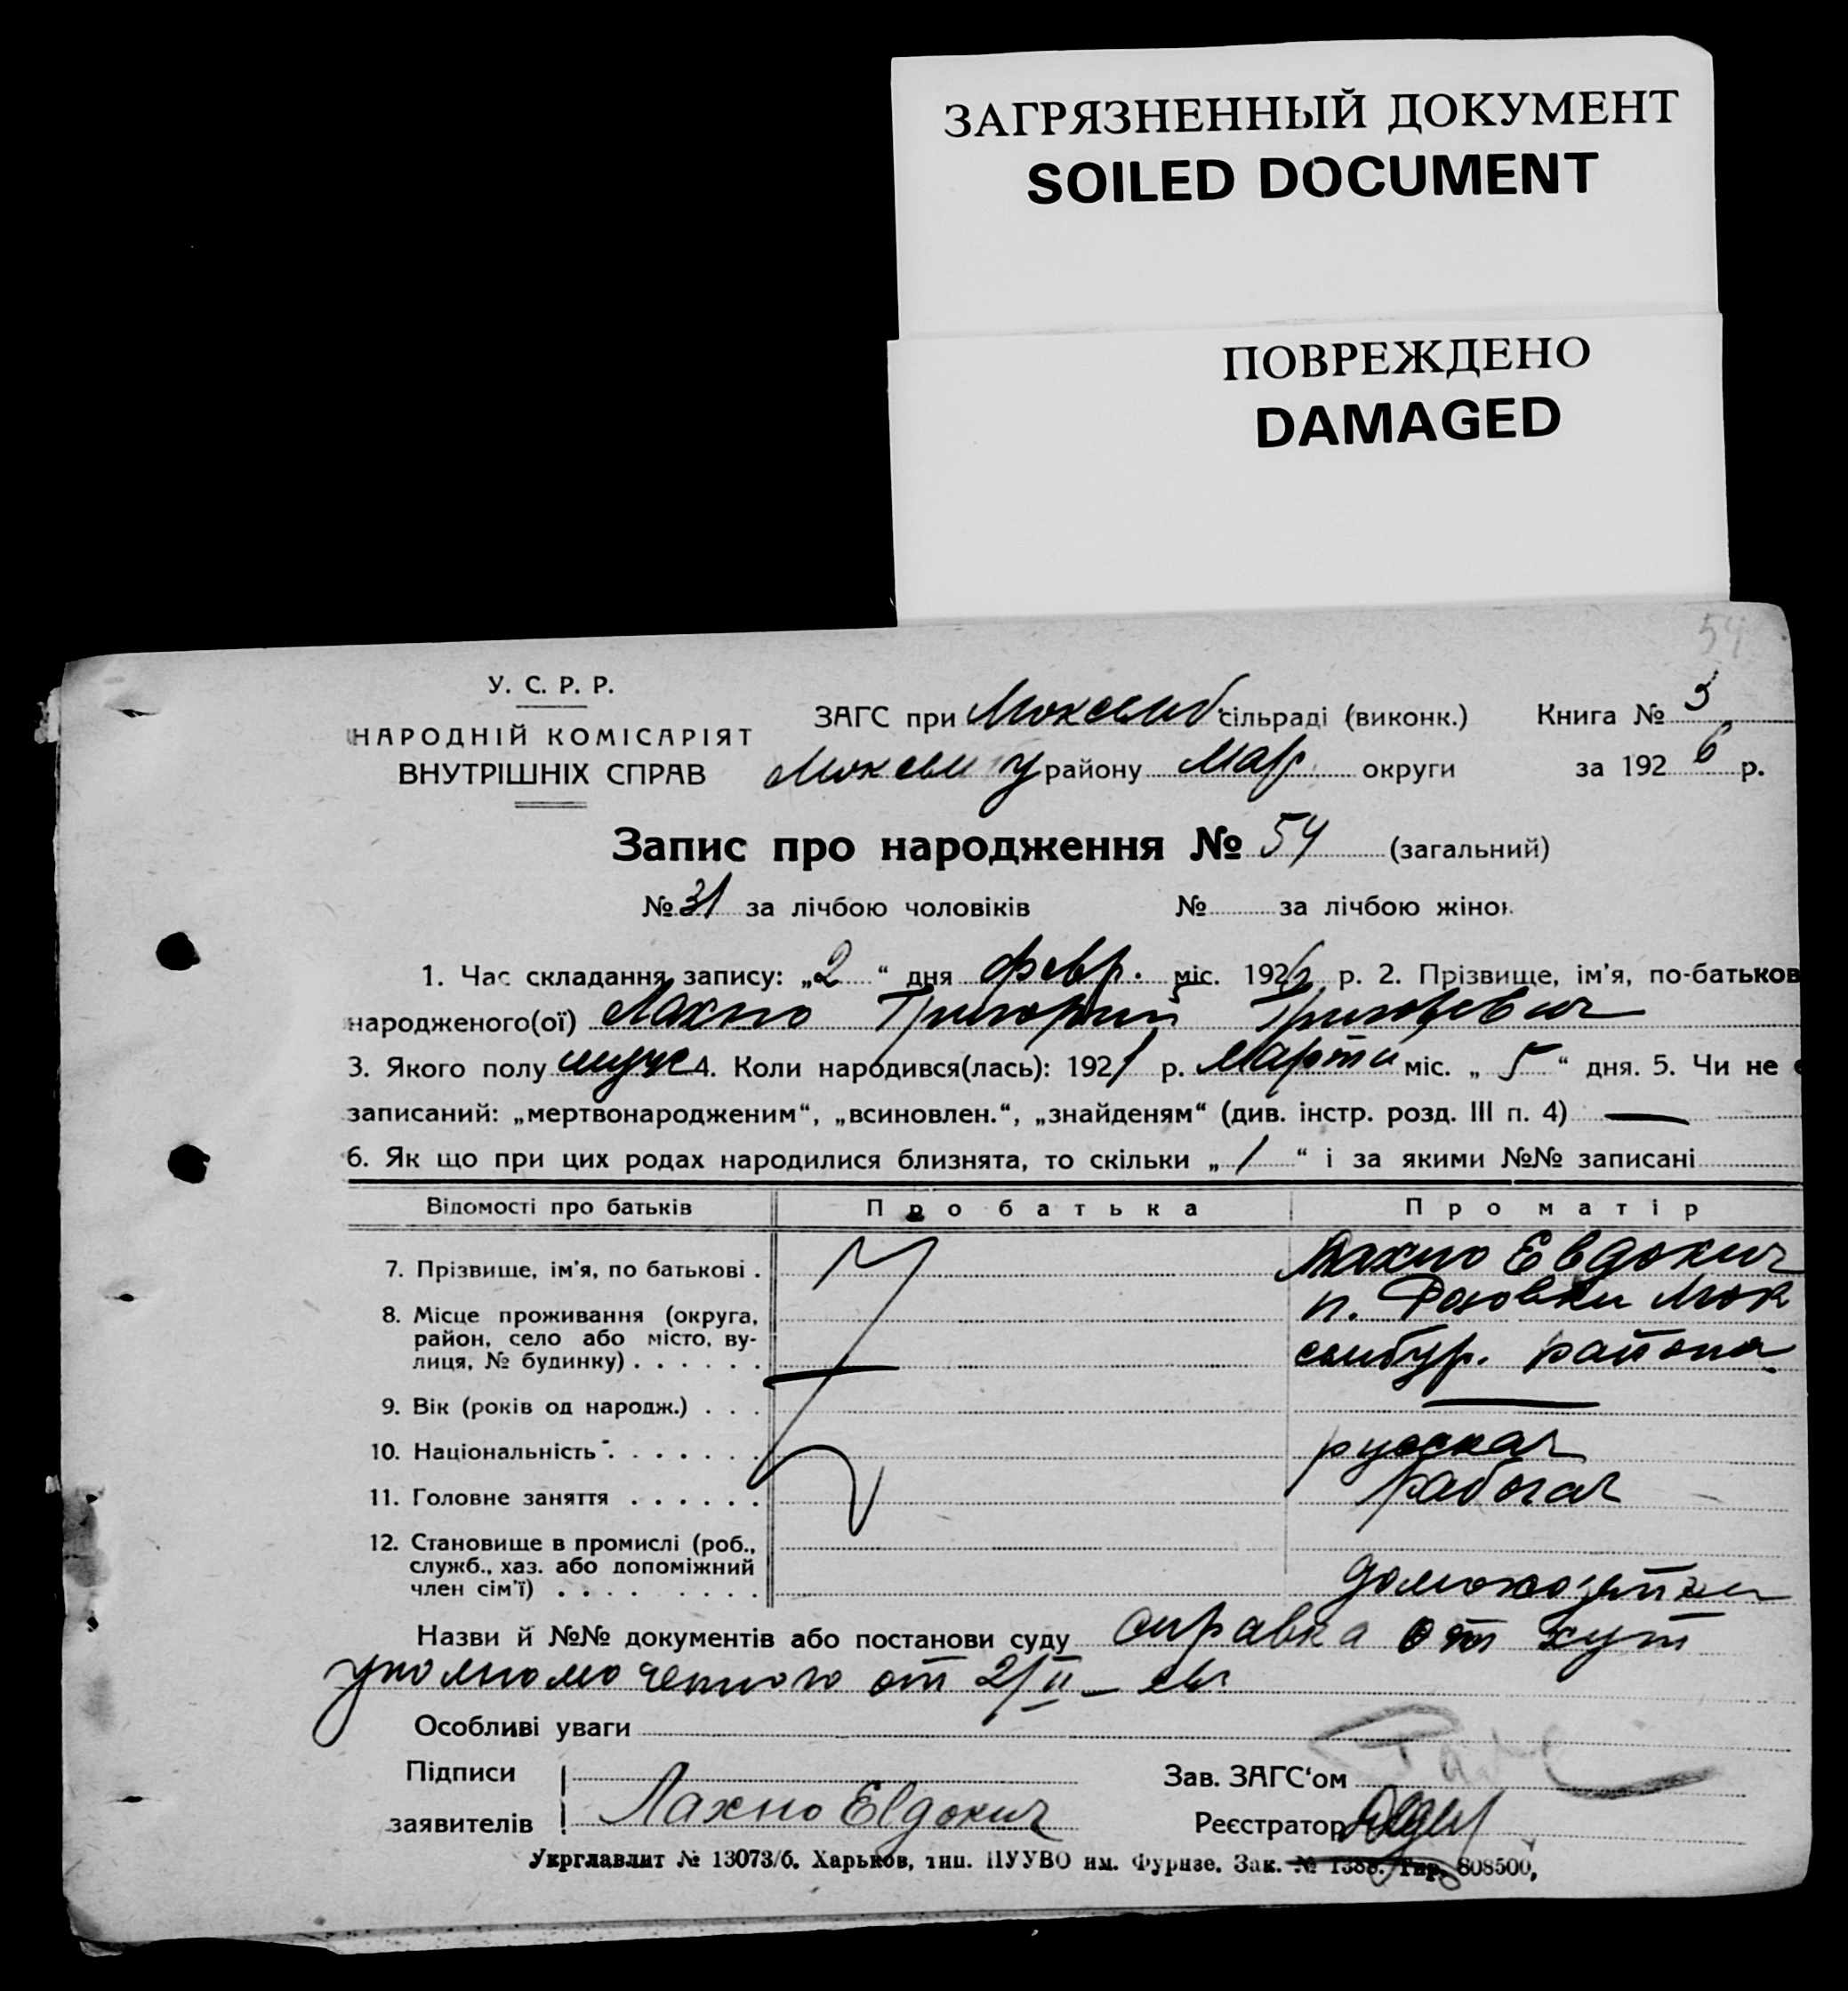 ЗАГРЯЗНЕННЫЙ ДОКУМЕНТ
SOILED DOCUMENT
ПОВРЕЖДЕНО
DAMAGED
54
У. С. Р. Р.
НАРОДНІЙ КОМІСАРІЯТ
ВНУТРІШНІХ СПРАВ
ЗАГС при сільраді (виконк.) Книга № 3
району Мар. округи за 1926 р.
Запис про народження № 54 (загальний)
№ 31 за лічбою чоловіків № за лічбою жінок
1. Час складання запису: „2“ дня февр. міс. 1926 р. 2. Прізвище, ім'я, по-батьков
народженого(ої) Лахно Григорий Григорьевич
3. Якого полу муж 4. Коли народився(лась): 1921 р. Марта міс. „5“ дня. 5. Чи не є
записаний: „мертвонародженим“, „всиновлен.“, „знайденям“ (див. інстр. розд. III п. 4) —
6. Як що при цих родах народилися близнята, то скільки „1“ і за якими №№ записані
Відомості про батьків Про батька Про матір
7. Прізвище, ім'я, по батькові . Лахно Евдокия
8. Місце проживання (округа,
район, село або місто, ву-
лиця, № будинку) . . . . . .
п. Розовки Мок
сембур. района
9. Вік (років од народж.) . . . —
10. Національність . . . . . . . русская
11. Головне заняття . . . . . . рабочая
12. Становище в промислі (роб.,
служб., хаз. або допоміжний
член сім'ї) . . . . . . . . домохозяйка
Назви й №№ документів або постанови суду справка от хут
уполномоченного от 2/II
Особливі уваги
Підписи
заявителів Лахно Евдокия
Зав. ЗАГС'ом
Реєстратор
Укрглавлит № 13073/б. Харьков, тип. ПУУВО им. Фрунзе. Зак. № 1388. Тир. 808500,